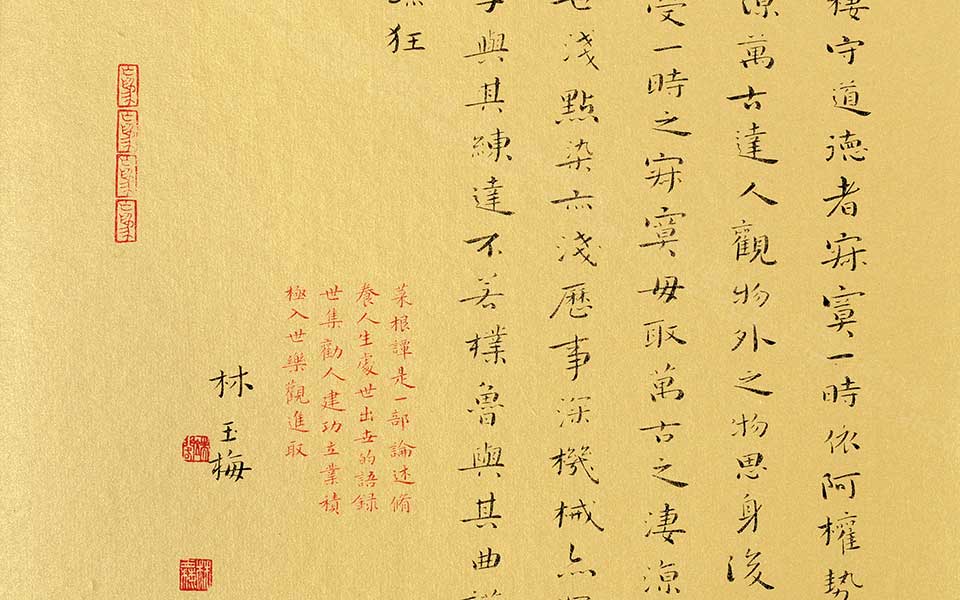 棲守道德者寂寞一時依阿權勢
涼萬古達人觀物外之物思身後
受一時之寂寞毋取萬古之淒涼
世淺點染亦淺歷事深機械亦深
子與其練達不若樸魯與其曲謹
疏狂
菜根譚是一部論述脩
養人生處世出世的語錄
世集勸人建功立業積
極入世樂觀進取
林玉梅